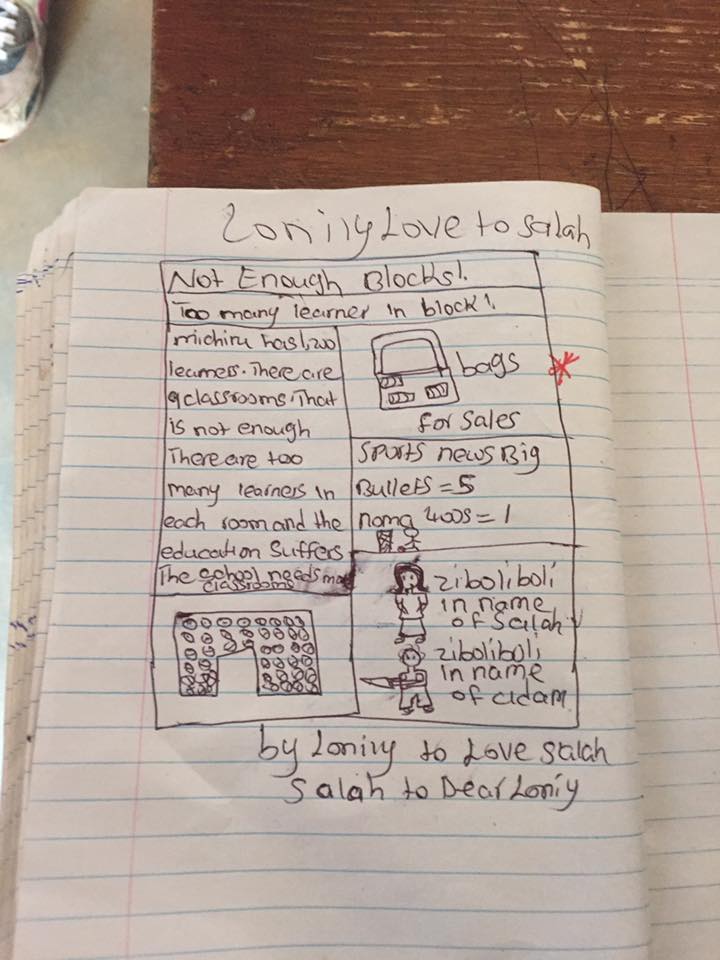 Loniiy Love to Salah
Not Enough Blocks!.
Too many learner in block!.
michiru has 1,200
learners. There are
9 classrooms. That
is not enough
There are too
many learners in
each room and the
education suffers
The school needs mor
classrooms
bags
for sales
Sports news Big
Bullets = 5
noma 400s = 1
ziboliboli
in name
of Salah
ziboliboli
in name
of adam
by Loniiy to Love Salah
Salah to Dear Loniy